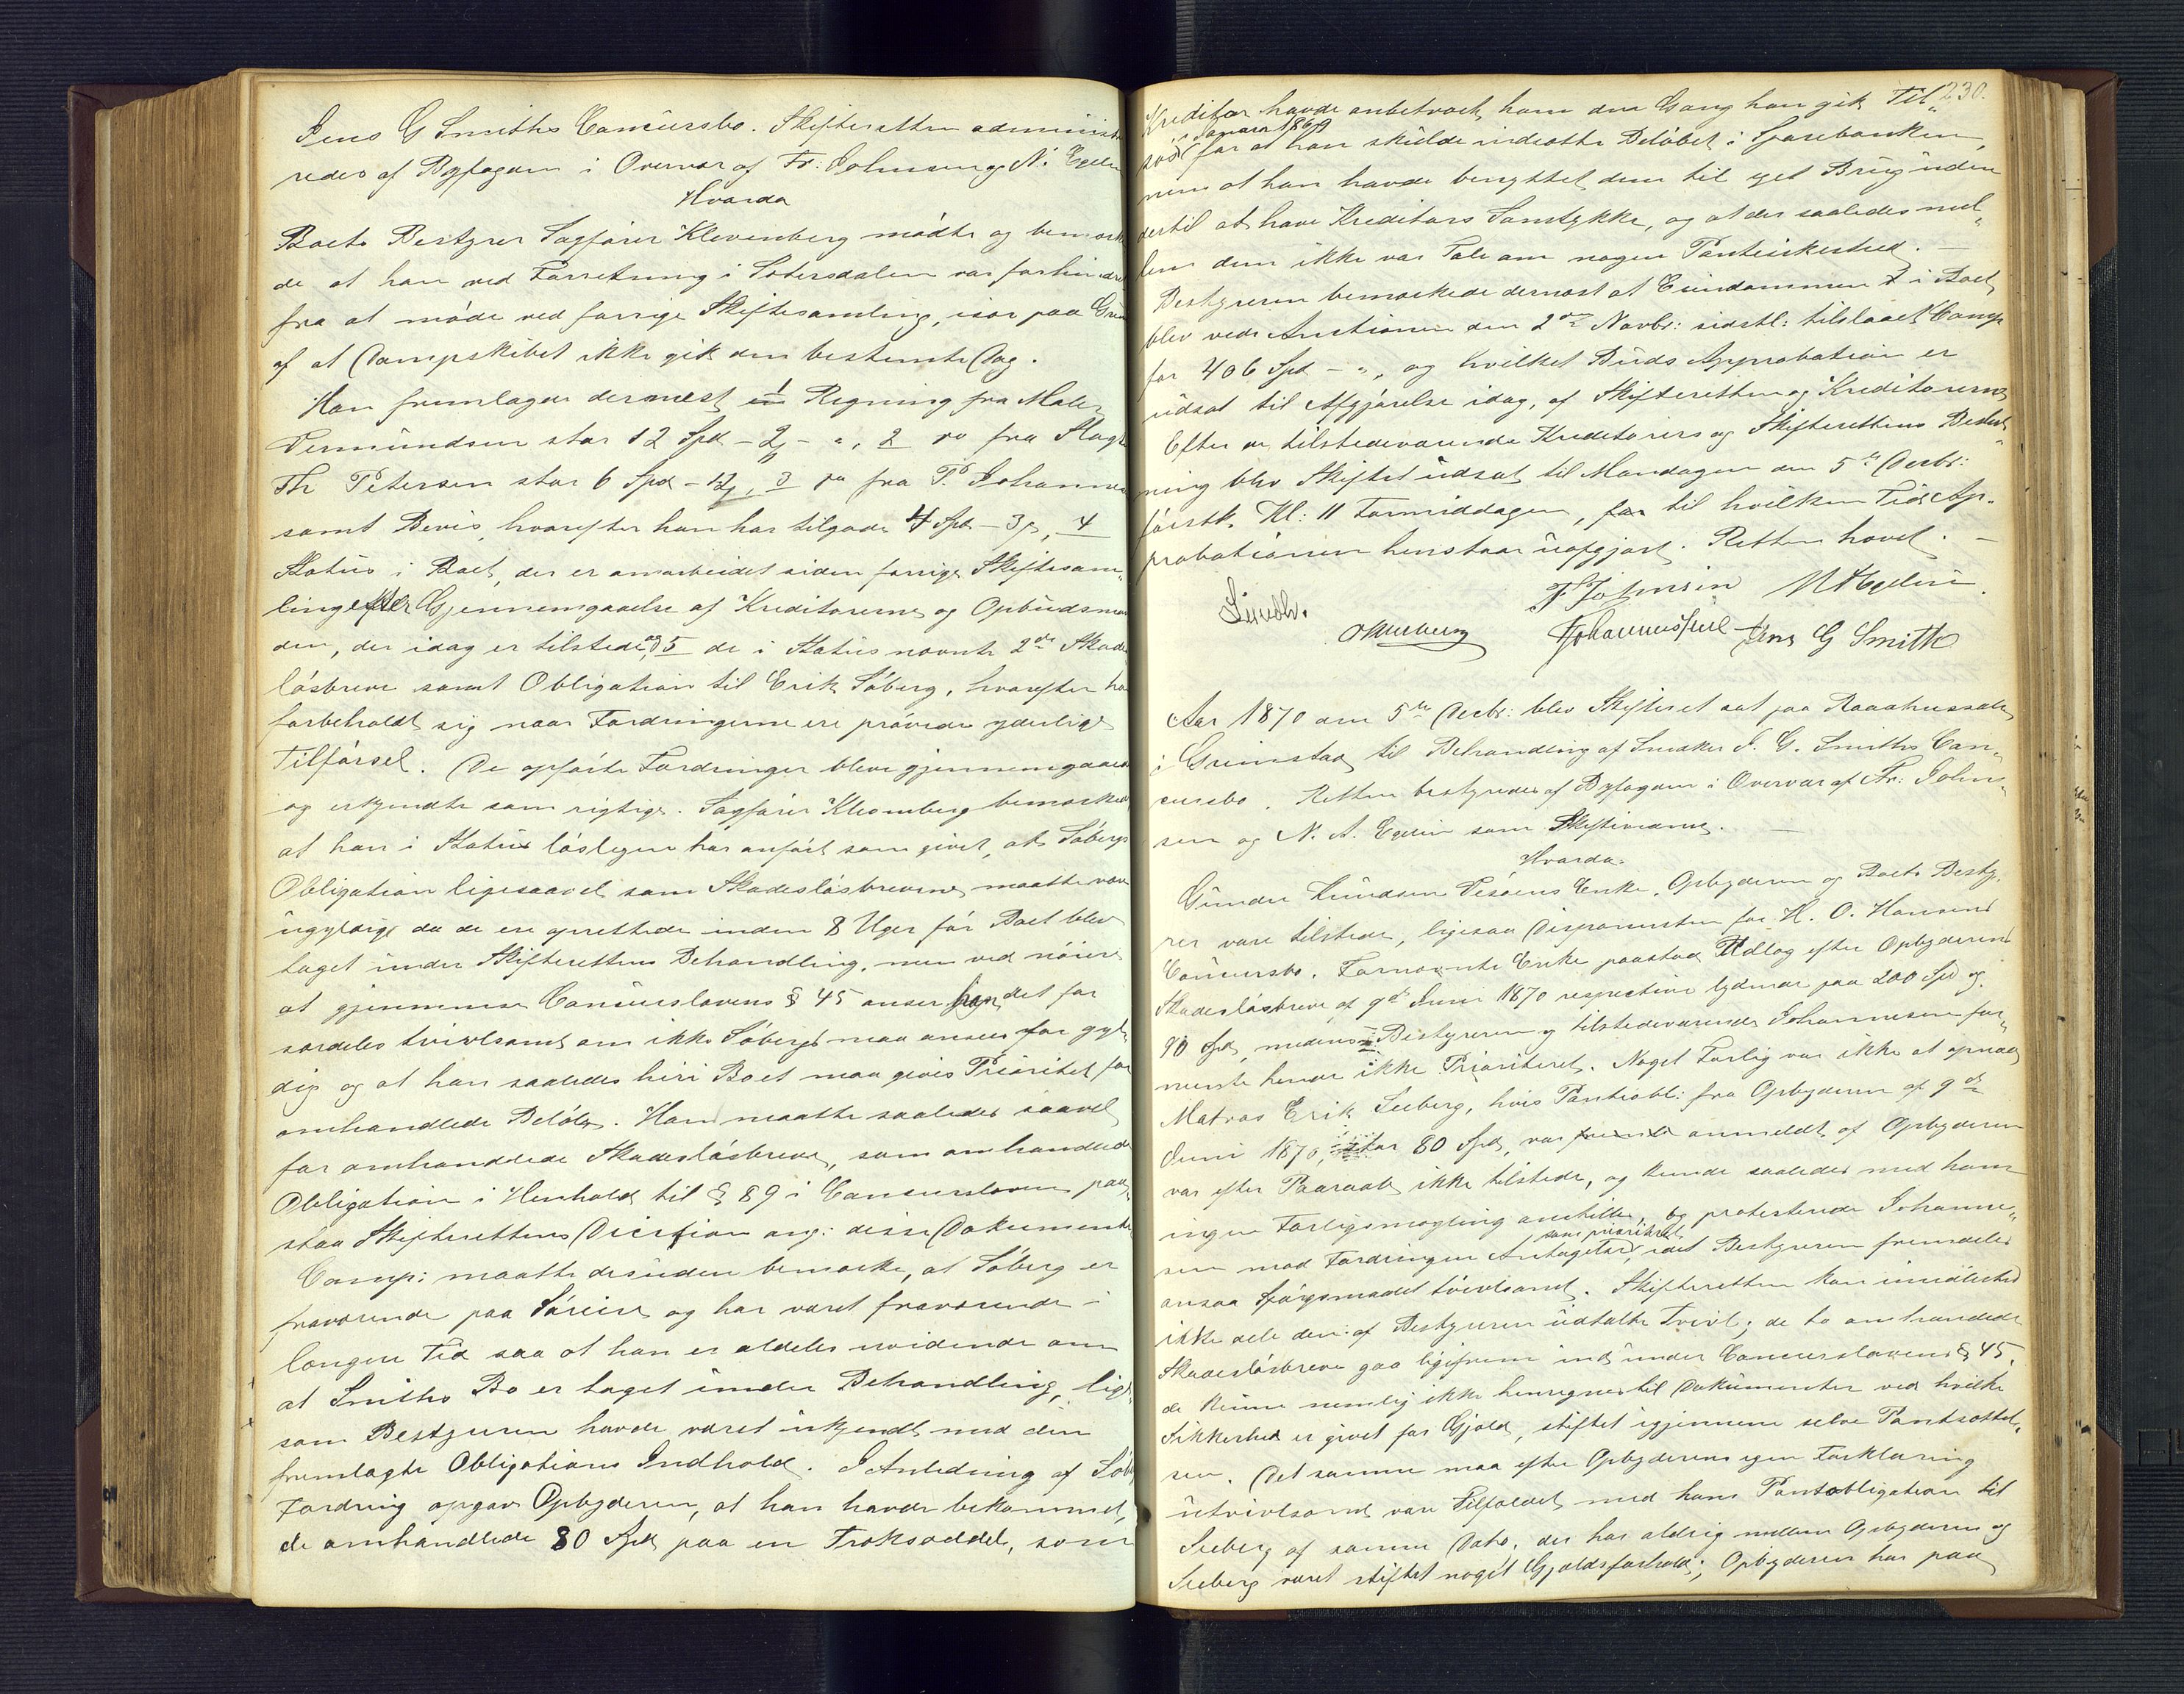 Jens G Smiths Concursbo. Skifteretten administ
redes af Byfogden i Overvær af Fr: Johnsen og N. Egelin
Hvorda
Boets Bestyrer Sagfører Klevenberg mødte og bemærk
de at han ved Forretning i Sætersdalen var forhindret
fra at møde ved forrige Skiftesamling, især paa Grund
af at Dampskibet ikke gik den bestemte Dag.
Han fremlagde dernæst 1 Regning fra Maler
Vermundsen stor 12 Spd - 2 - ", 2 do fra
Th Petersen stor 6 Spd - 12, 3 do fra P. Johannes
samt Bevis, hvorefter han har tilgode 4 Spd - 3, 4
Status i Boet, der er omarbeidet siden forrige Skiftesam„
ling efter Gjennemgaaelse af Kreditorerne og Opbudsman
den, der idag er tilstede, og 5 de i Status nævnte 2de Skades
løsbreve samt Obligation til Erik Søberg, hvorefter han
forbeholdt sig naar Fordringerne ere prøvede yderlige
Tilførsel. De opførte Fordringer bleve gjennemgaaede
og erkjendte som rigtige. Sagfører Klevenberg bemærkede
at han i Status løsligen har anført som givet, at Søbergs
Obligation ligesaavel som Skadesløsbrevene maatte være
ugyldige da de ere oprettede inden 8 Uger før Boet blev
taget under Skifterettens Behandling, men ved nøiere
at gjennemse Concurslovens § 45 anser han det for
særdeles tvivlsomt om ikke Søbergs maa ansees for gyl„
dig og at han saaledes heri Boet maa gives Prioritet for
omhandlede Beløb. Han maatte saaledes saavel
for omhandlede Skadesløsbreve, som omhandlede
Obligation i Henhold til § 89 i Concursloven paa„
staa Skifterettens Decision ang: disse Dokumenter
Comp: maatte desuden bemærke, at Søberg er
fraværende paa Søreise og har været fraværende i
længere Tid saa at han er aldeles uvidende om
at Smiths Bo er taget under Behandling, lige
som Bestyreren havde været ukjendt med den
fremlagte Obligations Indhold. I Anledning af Søbergs
Fordring opgav Opbyderen, at han havde bekommet
de omhandlede 80 Spd paa en Trækseddel, som
230.
Kreditor havde anbetroet ham den Gang han gik Til„
i Januar 1869
søes for at han skulde indsætte Beløbet i Sparebanken,
men at han havde benyttet dem til eget Brug uden
dertil at have Kreditors Samtykke, og at der saaledes mel„
lem dem ikke var Tale om nogen Pantesikkerhed. —
Bestyreren bemærkede dernæst at Eiendommen i Boet
blev ved Auctionen den 2den Novbr: sidstl: tilslaaet Comp
for 406 Spd - ", og hvilket Buds Approbation er
udsat til Afgjørelse idag, af Skifteretten og Kreditorerne
Efter de tilstedeværende Kreditorers og Skifterettens Beslut„
ning blev Skiftet udsat til Mandagen den 5te Decbr:
førstk. Kl: 11 Formiddagen, til hvilken Tid Ap„
probationen henstaar uafgjort. Retten hævet. —
F Johnsen N A Egelin
Jens G Smith
Aar 1870 den 5te Decbr: blev Skifteret sat paa Raadhussalen
i Grimstad til Behandling af Snedker J. G. Smiths Con„
cursbo. Retten bestyredes af Byfogden i Overvær af Fr: John„
sen og N. A. Egelin som Skiftevidner.
Hvorda.
Gunder Knudsen Vesøens Enke, Opbyderen og Boets Besty„
rer vare tilstede, ligesaa Disponenten for H. O. Hansens
Concursbo. Fornævnte Enke paastod Udlæg efter Opbyderens
Skadesløsbreve af 9de Juni 1870 respective lydende paa 200 Spd og
90 Spd, medens Bestyreren og tilstedeværende Johannesen for„
mente hende ikke Prioriteret. Noget Forlig var ikke at opnaa
Matros Erik Seeberg, hvis Panteobl: fra Opbyderen af 9de
Juni 1870, stor 80 Spd, var anmeldt af Opbyderen
var efter Paaraab ikke tilstede, og kunde saaledes med ham
ingen Forligsmægling anstilles, og protesterede Johanne„
som prioriteret
sen mod Fordringens Antagelse, idet Bestyreren fremdeles
ansaa Spørgsmaalet tvivlsomt. Skifteretten kan imidlertid
ikke dele den af Bestyreren udtalte Tvivl; de to omhandlede
Skadesløsbreve gaa ligefrem ind under Concurslovens § 45,
de kunne nemlig ikke henregnes til Dokumenter ved hvilke
Sikkerhed er givet for Gjæld, stiftet igjennem selve Pantsættel„
sen. Det samme maa efter Opbyderens egen Forklaring
utvivlsomt være Tilfældet med hans Panteobligation til
Seeberg af samme Dato, der har aldrig mellem Opbyderen og
Seeberg været stiftet noget Gjældsforhold; Opbyderen har paa